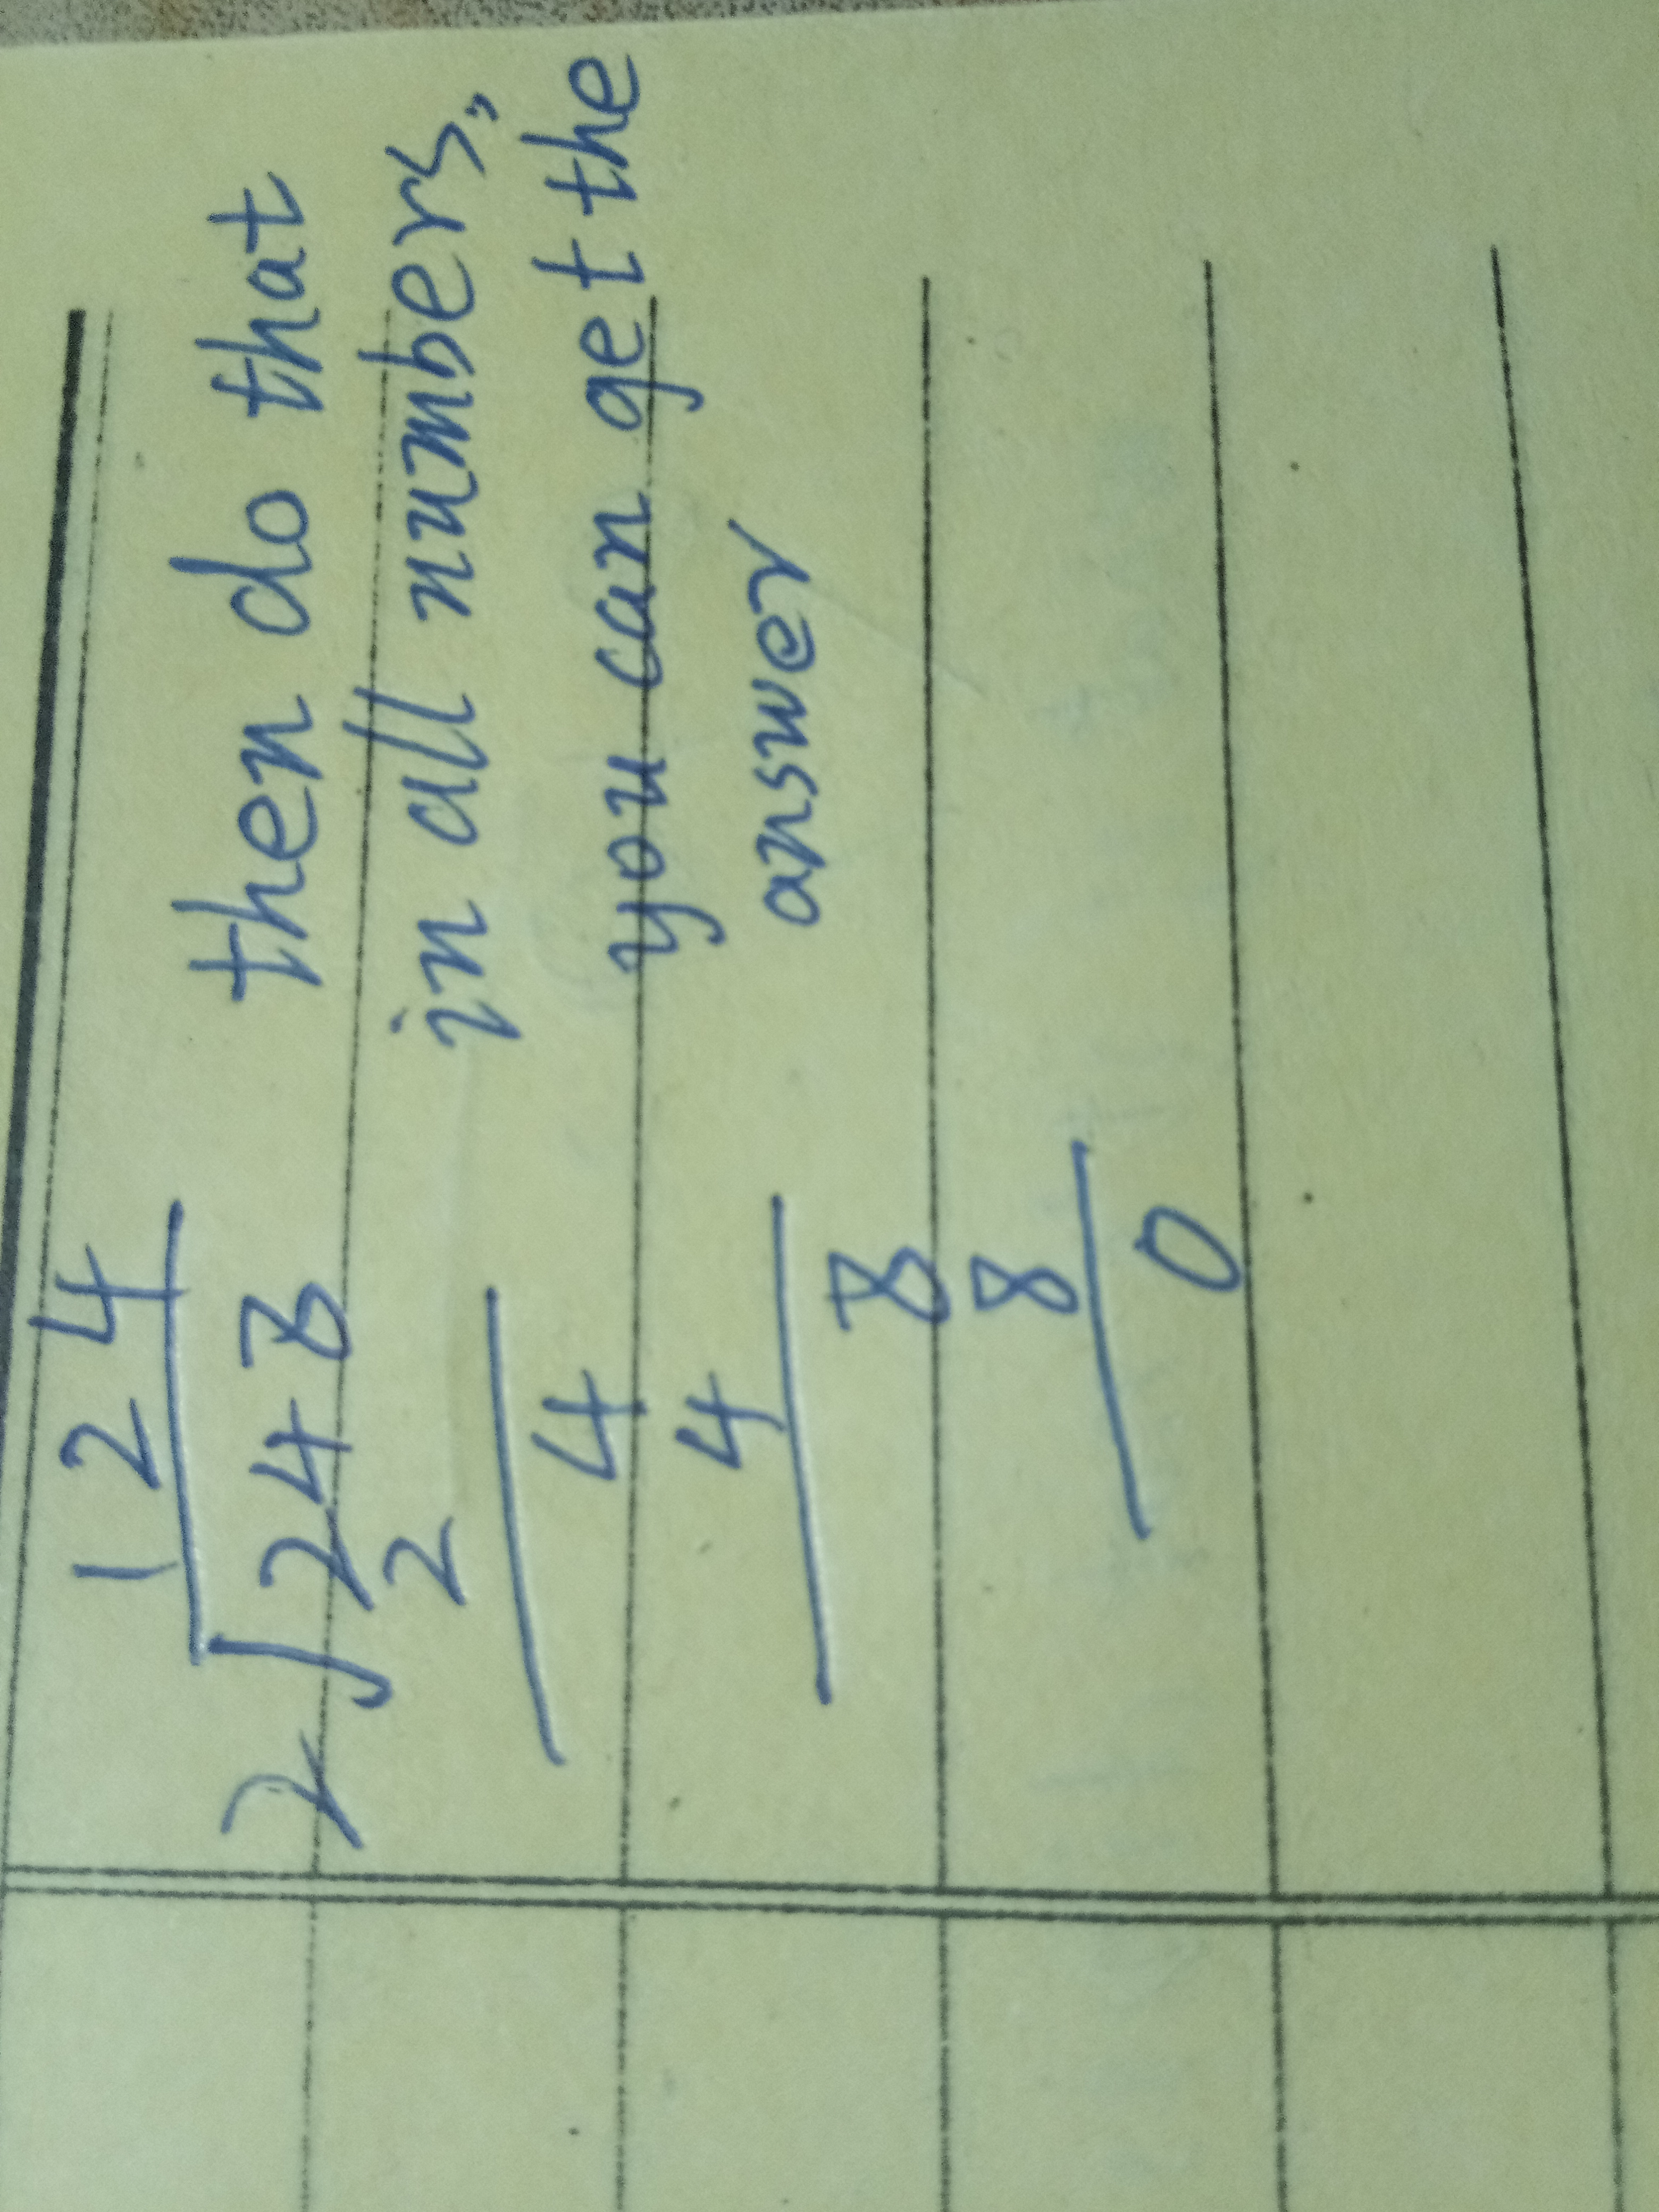 1 2 4
2 248
2
4
4
8
8
0
then do that
in all numbers,
you can get the
answer